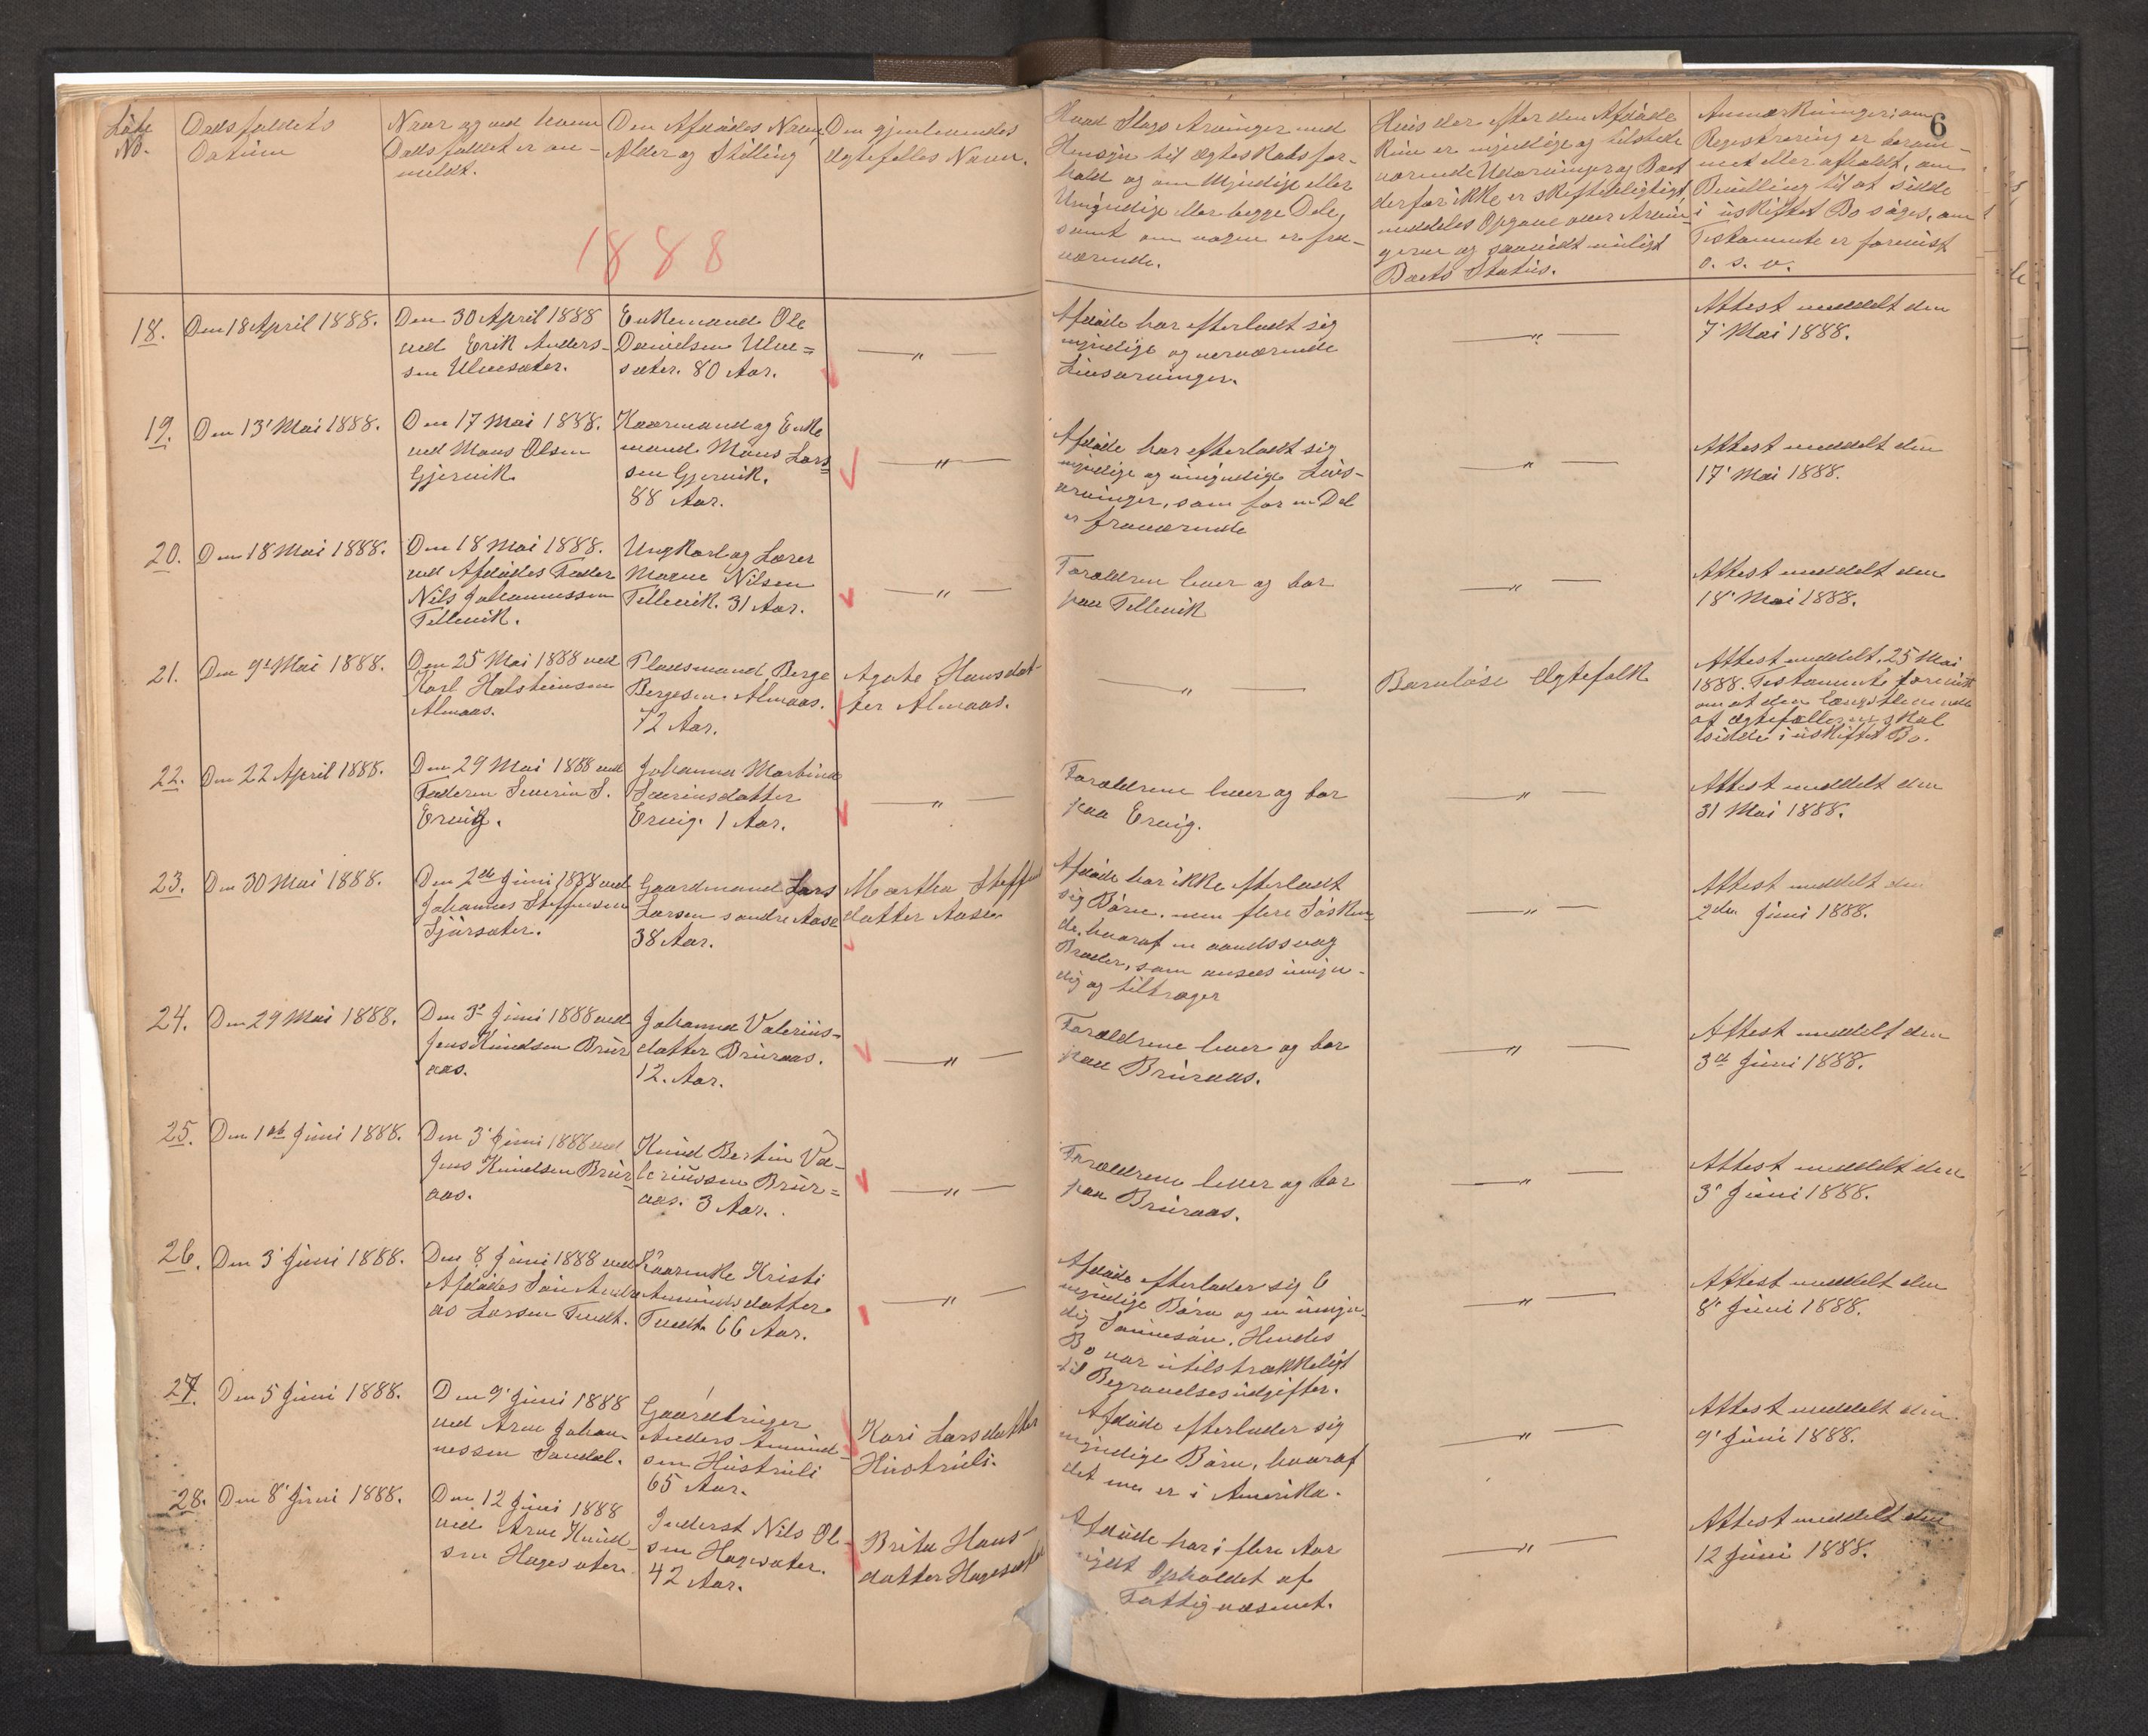 Løbe
No.
Dødsfaldets
Datum
Naar og ved hvem
Dødsfaldet er an-
meldt.
Den Afdødes Navn,
Alder og Stilling
Den gjenlevendes
Ægtefælles Navn.
Hvad Slags Arvinger med
Hensyn til Ægteskabsfor-
hold og om Myndige eller
Umyndige eller begge Dele,
samt om nogen er fra-
værende.
Hvis der efter den Afdøde
kun er myndige og tilstede
værende Udarvinger og Boet
derfor ikke er skiftepligtigt,
meddeles Opgave over Arvin-
gerne og saavidt muligt
Boets Status.
Anmærkninger: om
Registrering er beram-
met eller afholdt, om
Bevilling til at sidde
i uskiftet Bo søges, om
Testamente er forevist
o. s. v.
6
1888
18.
Den 18 April 1888.
Den 30 April 1888
ved Erik Anders-
sen Ulvesæter.
Enkemand Ole
Danielsen Ulve=
sæter. 80 Aar.
— " —
Afdøde har efterladt sig
myndige og nærværende
Livsarvinger.
— " —
Attest meddelt den
7' Mai 1888.
19.
Den 13' Mai 1888.
Den 17 Mai 1888.
ved Mons Olsen
Gjervik.
Kaarmand og Enke
mand Mons Lars=
sen Gjervik.
88 Aar.
— " —
Afdøde har efterladt sig
myndige og umyndige Livs-
arvinger, som for en Del
er fraværende
— " —
Attest meddelt den
17' Mai 1888.
20.
Den 18 Mai 1888.
Den 18 Mai 1888.
ved Afdødes Fader
Nils Johannessen
Tellevik.
Ungkarl og Lærer
Magne Nilsen
Tellevik. 31 Aar.
— " —
Forældrene lever og bor
paa Tellevik
— " —
Attest meddelt den
18' Mai 1888.
21.
Den 9' Mai 1888.
Den 25 Mai 1888 ved
Karl Halsteinsen
Almaas.
Pladsmand Berge
Bergesen Almaas.
72 Aar.
Agate Hansdat-
ter Almaas.
— " —
Barnløse Ægtefolk
Attest meddelt, 25 Mai
1888. Testamente forevist
om at den Længstlevende
af Ægtefællerne skal
sidde i uskiftet Bo.
22.
Den 22 April 1888.
Den 29 Mai 1888 ved
Faderen Severin S.
Ervig.
Johanna Martine
Severinsdatter
Ervig. 1 Aar.
— " —
Forældrene lever og bor
paa Ervig.
— " —
Attest meddelt den
31 Mai 1888.
23.
Den 30 Mai 1888.
Den 2den Juni 1888 ved
Johannes Steffensen
Gaardmand Lars
Larsen søndre Aase
38 Aar.
Martha Steffens
datter Aase
Afdøde har ikke efterladt
sig Børn, men flere Søsken-
de, hvoraf en aandssvag
Broder, som ansees umyn-
dig og tiltrænger
— " —
Attest meddelt den
2den Juni 1888.
24.
Den 29 Mai 1888.
Den 3' Juni 1888 ved
Jens Knudsen Brur
aas.
Johanna Valeriüs-
datter Bruraas.
12. Aar.
— " —
Forældrene lever og bor
paa Bruraas.
— " —
Attest meddelt den
3d Juni 1888.
25.
Den 1ste Juni 1888.
Den 3' Juni 1888 ved
Jens Knudsen Brur=
aas.
Knud Bertin Va-
leriussen Brur=
aas. 3 Aar.
— " —
Forældrene lever og bor
paa Bruraas.
— " —
Attest meddelt den
3' Juni 1888.
26.
Den 3' Juni 1888.
Den 8' Juni 1888 ved
Afdødes Søn Andre
as Larsen Tvedt.
Kaarenke Kristi
Amundsdatter
Tvedt. 66 Aar.
— " —
Afdøde efterlader sig 6
myndige Børn og en umyn-
dig Sønnesøn. Hendes
Bo var utilstrækkeligt
til Begravelsesudgifter.
— " —
Attest meddelt den
8' Juni 1888.
27.
Den 5 Juni 1888.
Den 9' Juni 1888
ved Arne Johan-
nessen Søndal.
Gaardbruger
Anders Amund-
sen Hustruli
65 Aar.
Kari Larsdatter
Hustruli.
Afdøde efterlader sig
myndige Børn, hvoraf
det ene er i Amerika.
— " —
Attest meddelt den
9' Juni 1888.
28.
Den 8' Juni 1888.
Den 12 Juni 1888
ved Arne Knud-
sen Hagesæter.
Inderst Nils Ol-
sen Hagesæter.
42 Aar.
Brita Hans-
datter Hagesæter
Afdøde har i flere Aar
nydt Ophold af
Fattigvæsenet.
— " —
Attest meddelt den
12 Juni 1888.